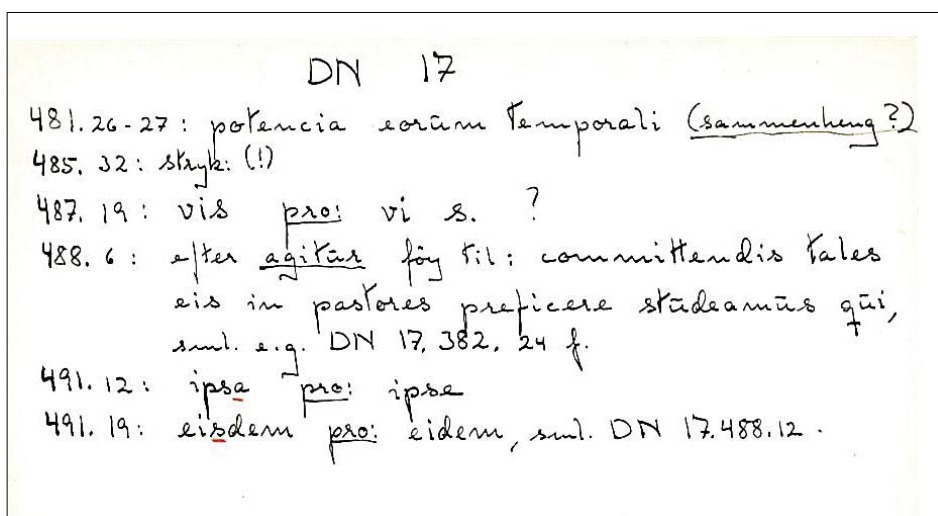 DN 17
481.26-27: potencia eorum temporali (sammenheng?)
485.32: stryk: (!)
487.19: vis pro: vi s. ?
488.6: efter agitur föy til: committendis tales
eis in pastores preficere studeamus qui,
sml. e.g. DN 17, 382, 24 f.
491.12: ipsa pro: ipse
491.19: eisdem pro: eidem, sml. DN 17.488.12.